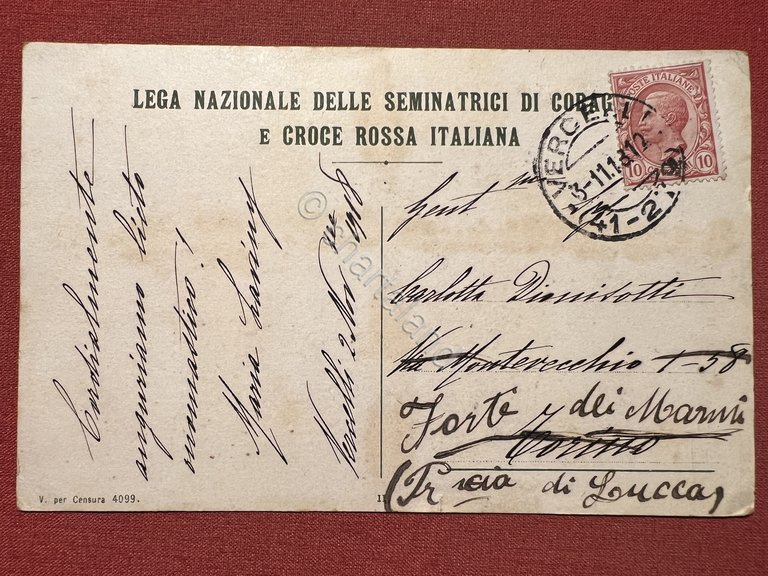 LEGA NAZIONALE DELLE SEMINATRICI DI CORAG
E CROCE ROSSA ITALIANA
POSTE ITALIANE
10 10
VERCELLI
3-11.18 12
Cordialmente
auguriamo lieto
onomastico!
Maria
Vercelli 2 Nov 1918
Gent ma
Carlotta Dionisotti
Via Montevecchio 1-58
Torino
Forte dei Marmi
(Pr cia di Lucca)
V. per Censura 4099.
11
© chartaland